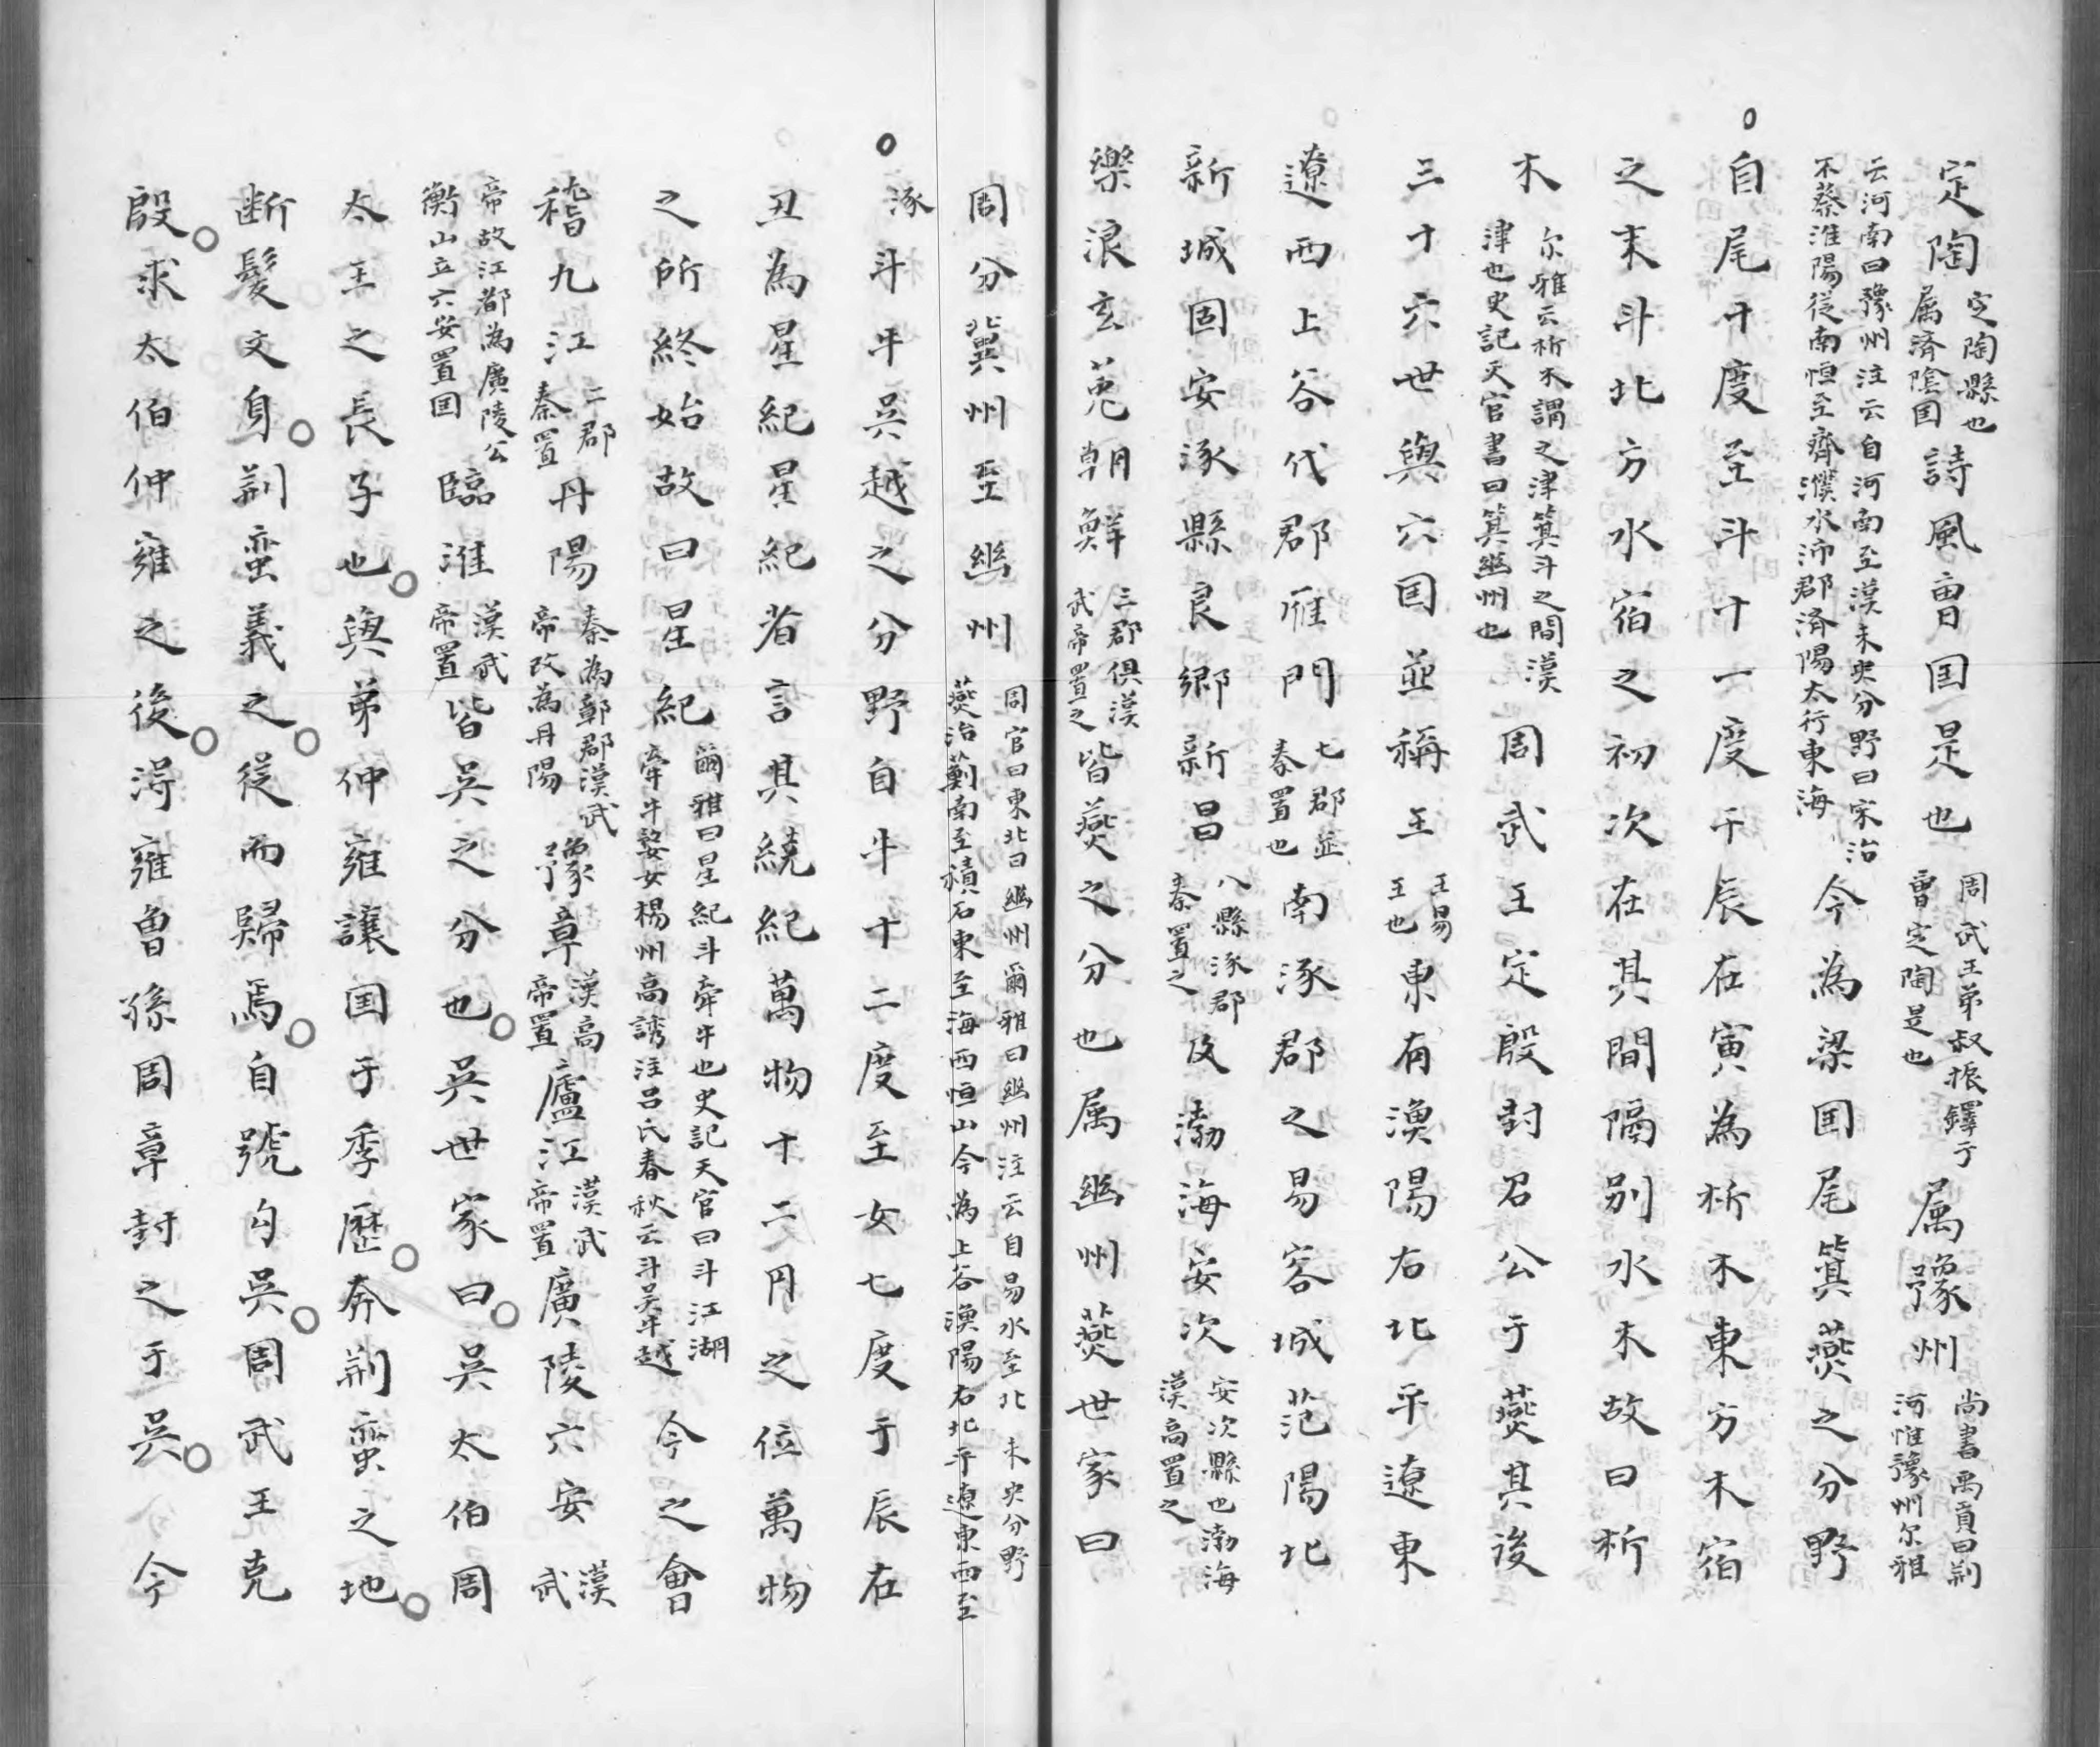 定陶定陶縣也属済陰国詩風曹国是也周武王弟叔振鐸于曹定陶是也属豫州尚書禹貢曰荊河惟豫州尔雅
云河南曰豫州注云自河南至漢未央分野曰宋治不蔡淮陽従南恒至齊濮水沛郡済陽太行東海今為梁国尾箕燕之分野
自尾十度至斗十一度于辰在寅為析木東方木宿
之末斗北方水宿之初次在其間隔別水木故曰析
木尔雅云析木謂之津箕斗之間漢津也史記天官書曰箕幽州也周武王定殷封召公于燕其後
三十六世與六国並稱王王易王也東有漁陽右北平遼東
遼西上谷代郡雁門七郡並秦置也南涿郡之易容城范陽北
新城固安涿縣良郷新昌八縣涿郡秦置之及渤海安次安次縣也渤海漢高置之
樂浪玄菟朝鮮三郡倶漢武帝置之皆燕之分也属幽州燕世家曰
周分冀州至幽州周官曰東北曰幽州爾雅曰幽州注云自易水至北未央分野燕治薊南至積石東至海西恒山今為上谷漁陽右北平遼東西至
涿斗牛呉越之分野自牛十二度至女七度于辰在
丑為星紀星紀者言其繞紀萬物十二月之位萬物
之所終始故曰星紀爾雅曰星紀斗牽牛也史記天官曰斗江湖牽牛婺女楊州高誘注呂氏春秋云斗吴牛越今之會
稽九江二郡秦置丹陽秦為鄣郡漢武帝改為丹陽豫章漢高帝置廬江漢武帝置廣陵六安漢武
帝故江都為廣陵公衡山立六安置国臨淮漢武帝置皆呉之分也呉世家曰呉太伯周
太王之長子也與弟仲雍譲国于季歴奔荊蛮之地
断髪文身荊蛮義之従而歸焉自號勾呉周武王克
殷求太伯仲雍之後淂雍曽孫周章封之于呉今